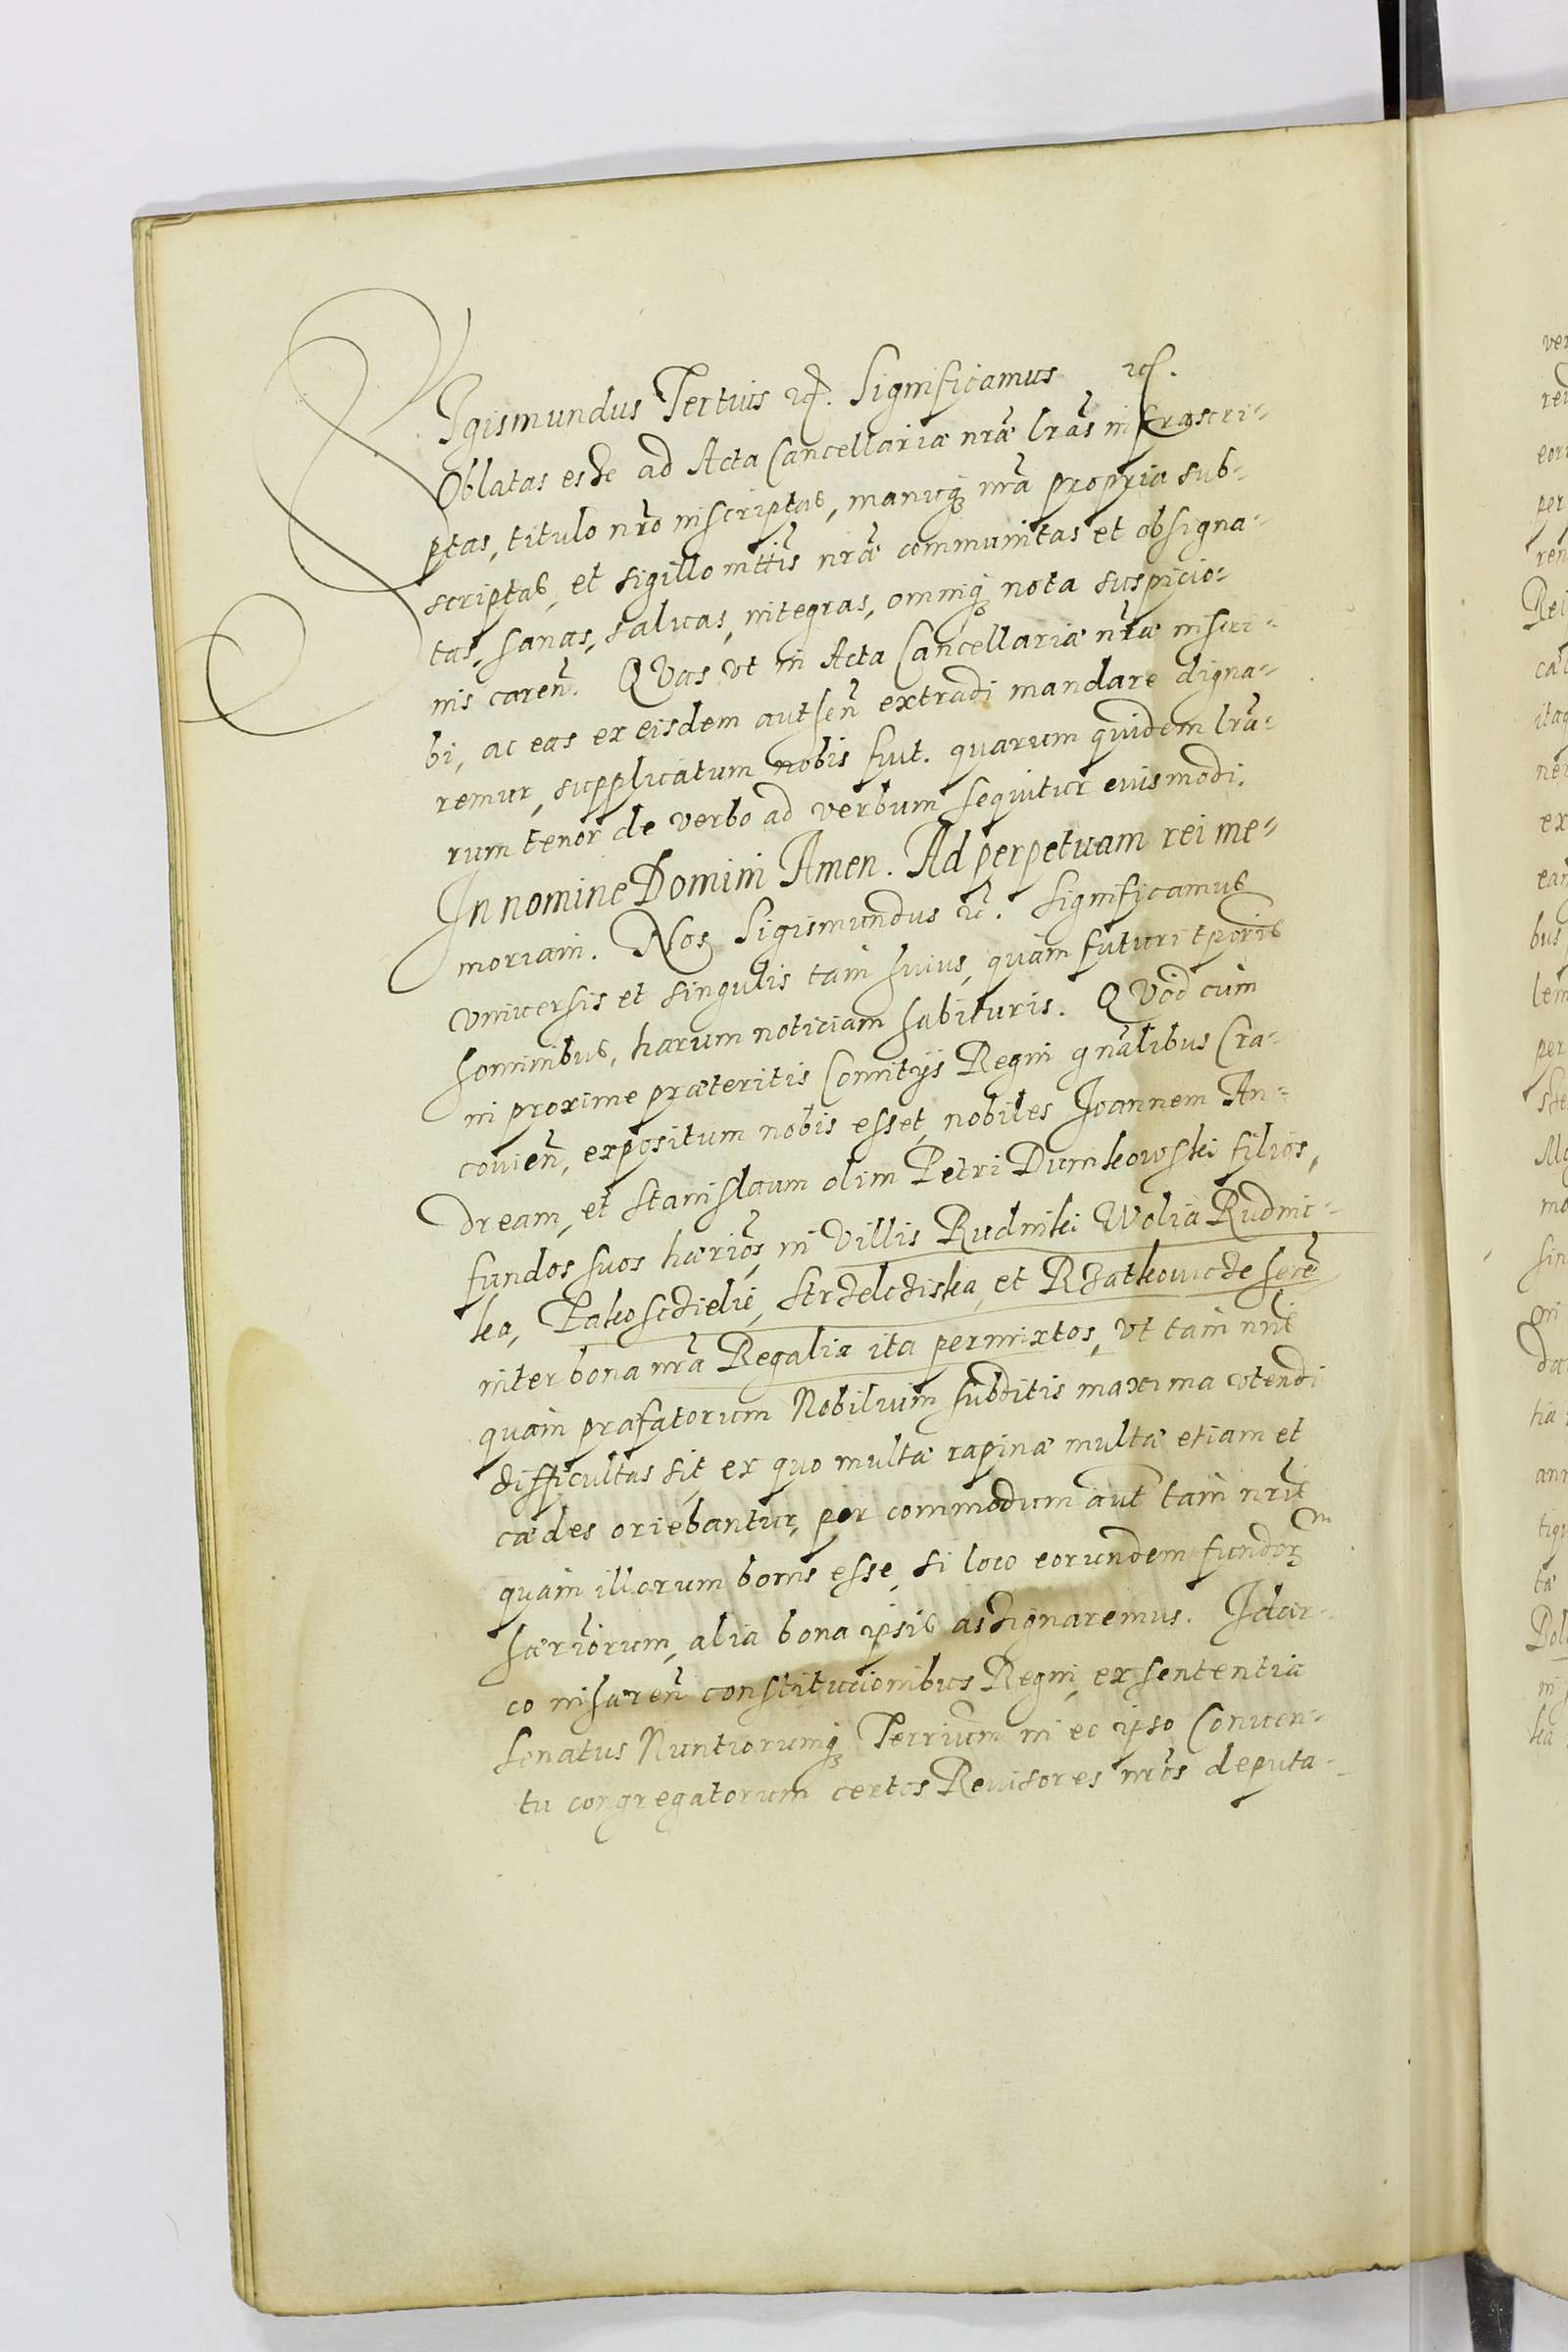 SJgismundus Tertius etc. Significamus etc.
Oblatas esse ad Acta Cancellariæ nræ lras infrascri-
ptas, titulo nro inscriptas, manuq nra propria sub-
scriptas, et sigillo mttis nræ communitas et obsigna-
tas, sanas, saluas, integras, omniq nota suspicio-
nis caren. QVas vt in Acta Cancellariæ nræ inscri-
bi, ac eas ex eisdem autsen extradi mandare digna-
remur, supplicatum nobis fuit. quarum quidem lra-
rum tenor de verbo ad verbum sequitur eiusmodi.
In nomine Domini Amen. Ad perpetuam rei me-
moriam. Nos Sigismundus etc. Significamus
vniuersis et singulis tam huius, quam futuri tporis
hominibus, harum noticiam habituris. QVod cum
in proxime præteritis Comitys Regni gnalibus Cra-
couien, expositum nobis esset, nobiles Joannem An-
dream, et Stanislaum olim Petri Dunikowski filios,
fundos suos hærios, in Villis Rudniki Wolia Rudnic-
ka, Pakoszdielie, Strzelcziska, et Rzatkowicze
inter bona nra Regalia ita permixtos, vt tam nris
quam præfatorum Nobilium subditis maxima vtendi
difficultas sit, ex quo multæ rapinæ multæ etiam et
cædes oriebantur, per commodum aut tam nris
quam illorum bonis esse, si loco eorundem fundor
hæriorum, alia bona ipsis assignaremus. Idcir-
co inhæren constitucionibus Regni, ex sententia
Senatus Nuntiorumq Terrium in eo ipso Conuen-
tu congregatorum certos Reuisores nros deputa-
ver
rei
eor
per
ren
Rei
itaq
nei
ex
ean
bus
lem
per
mo
sin
in
da
tia
ann
tiqu
tæ
Pol
in
ka